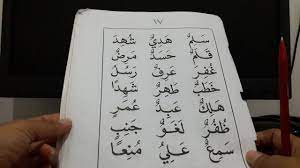 ١٧
سَلَمٌ هَدِيَّ شُهِدَ
قَلَمٌ حَسَدٌ مَرِضٌ
غُفِرَ عَرَقٌ رَسُلٌ
حَطَبٌ طَهِرٌ شَهِدًا
هَلَكَ عَبِدٌ عُمَرٍ
ظُفُرٌ لَغَوٌ جَنِبٍ
سَمِيعٌ عَلِيٌّ مُنِعًا